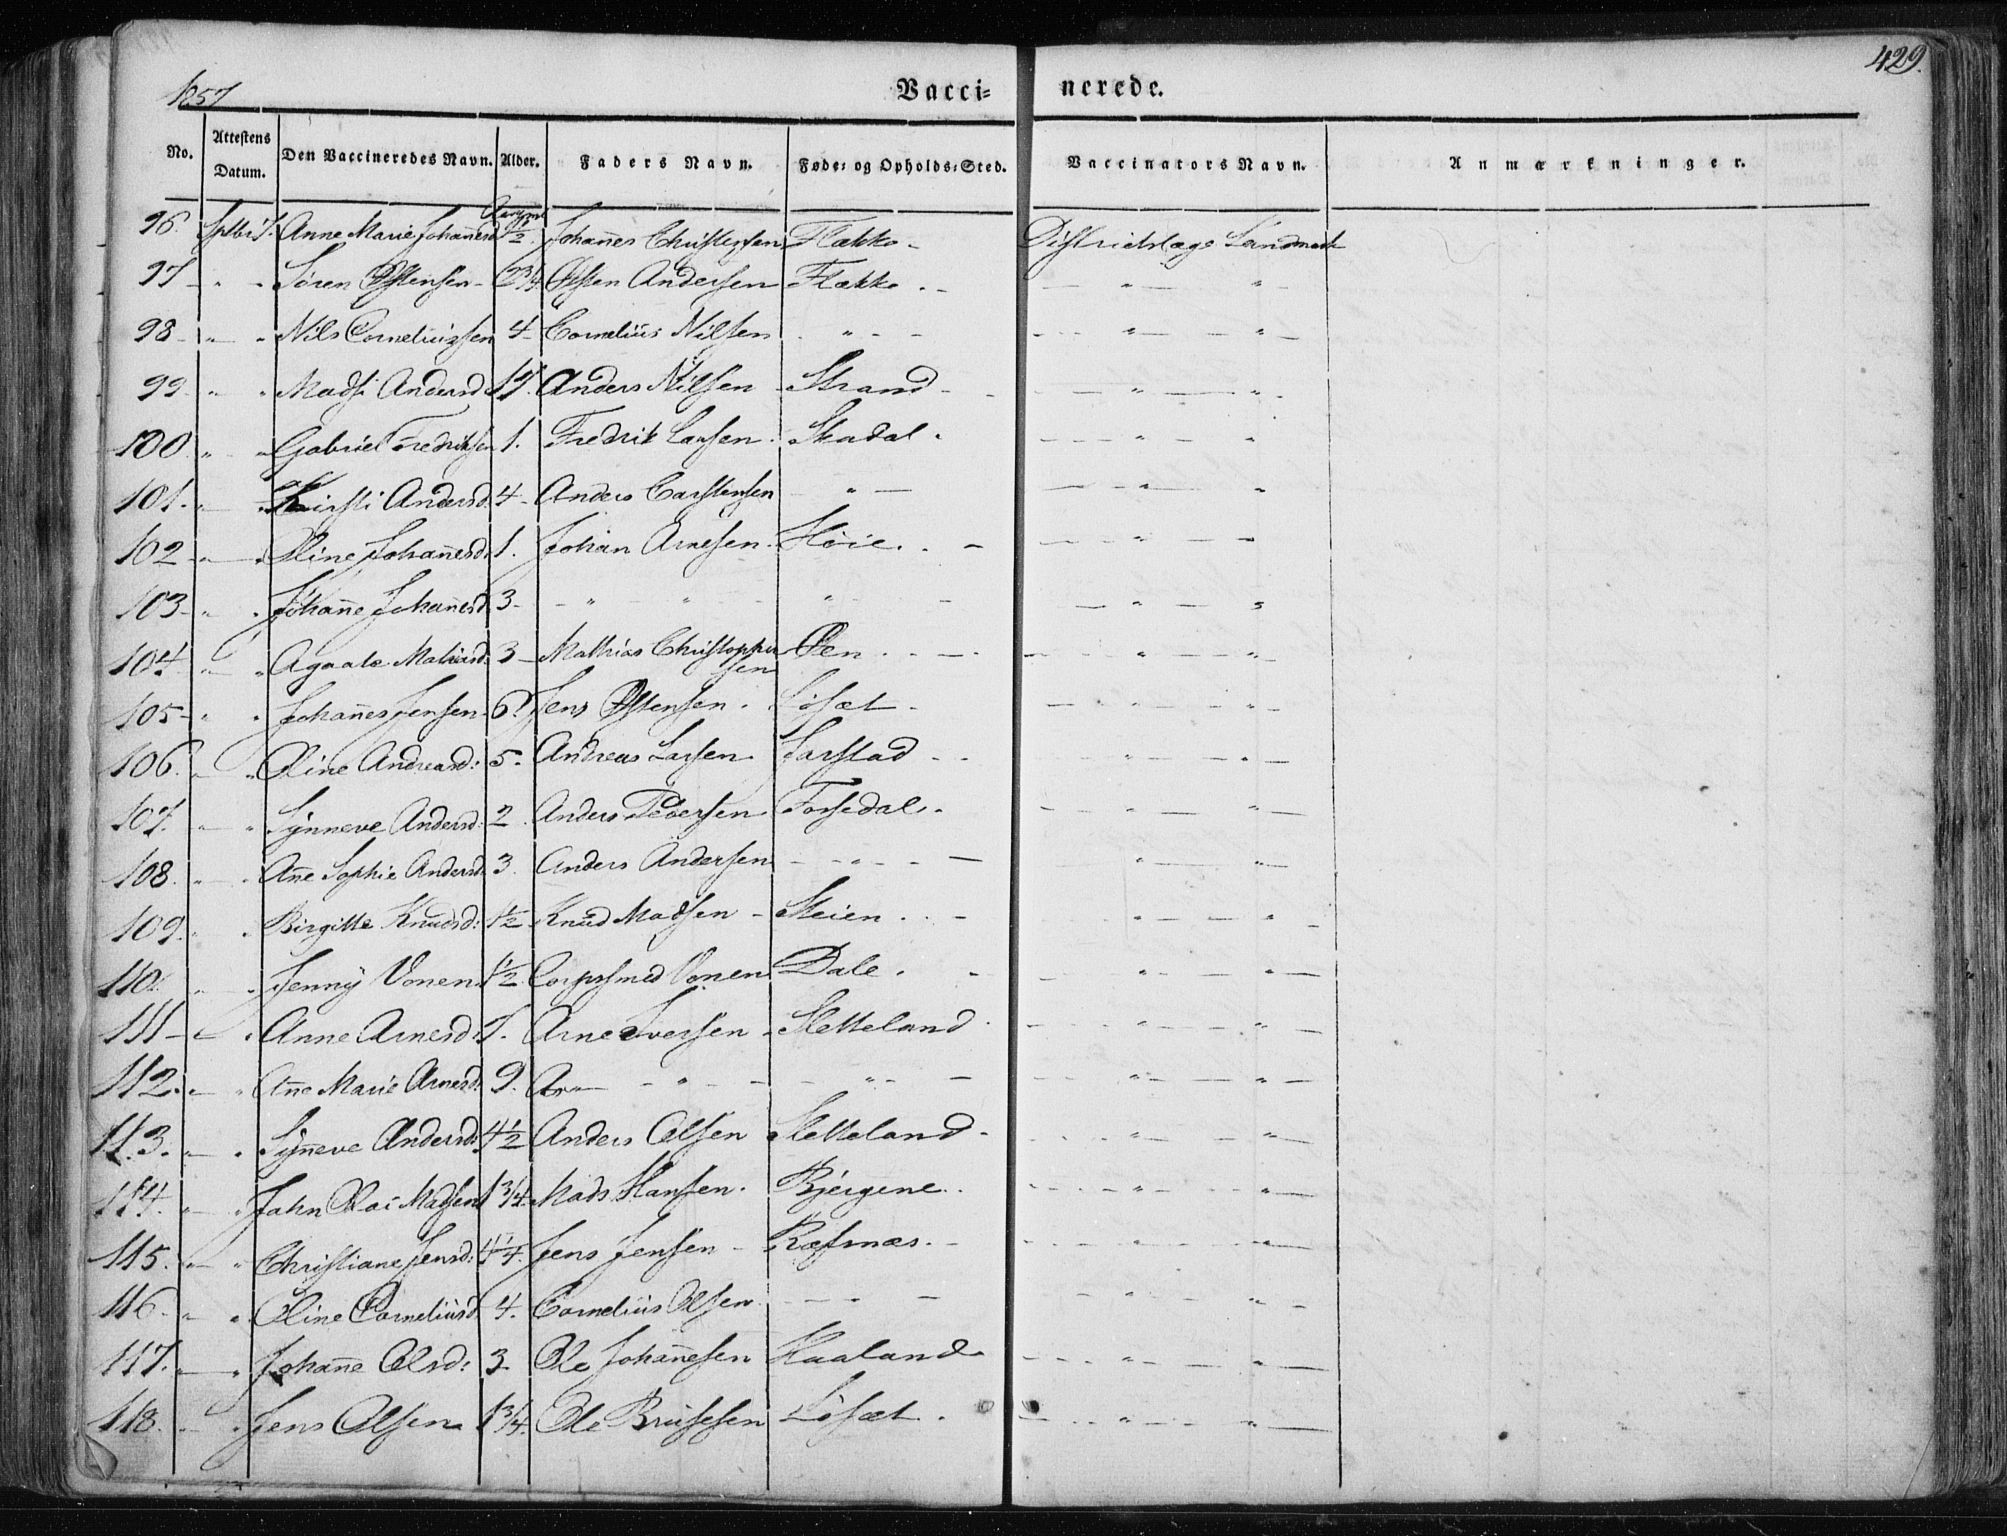 429.
1857
Vacci= nerede.
No. Attestens Datum. Den Vaccineredes Navn. Alder. Faders Navn. Føde= og Opholds=Sted. Vaccinators Navn. Anmærkninger.
96. Anne Marie Johañesd 1/2 Johañes Christensen Flekke - Districtslæge Landmark
97 - " " Søren Østensen - 2 3/4 Østen Andersen Flekke . - — " — " -
98 - " " Nils Corneliussen 4 - Cornelius Nilsen " - - - - " — "
99. " " Madsi Andersd 17. Anders Nilsen - Strand - - — " — "
100. " " Gabriel Fredriksen 1. Fredrik Larsen . Skadal . - - " - "
101. " " Kirsti Andersd 4 - Anders Carstensen " — — - " — "
102 " " Oline Johañesd. 1. Johan Arnesen . Høie . . - — - " - "
103 - " " Johañe Johañesd 3 - - " " - " - — " — "
104. " " Agaate Mathiasd: 3 - Mathias Christopher Øen . . — - " — "
sen
105 - " " Johañes Jensen 6. Jens Østensen . Løset - — " - "
106. " " Oline Andreasd: 5. Andreas Larsen . Sarstad - - " — "
107. " " Synneve Andersd: 2. Anders Pedersen Fossedal . — - " — "
108. " " Añe Sophie Andersd. 3. Anders Andersen - - " - — " — "
109. " " Birgitte Knudsd: 1 1/2 Knud Madsen - Steien . - " — "
110. " " Jenny Vonen 1 1/2 Corpssmed Vonen Dale . - — " - "
111 - " " Anne Arnesd: 7. Arne Iversen - Sletteland - - " - "
112. " " Añe Marie Arnesd: 9. - " - - " - — " — "
113. " " Syñeve Andersd: 4 1/2 Anders Olsen Sletteland - - - " — "
114. " " Jahn Olai Madsen 1 3/4 Mads Hansen . Bjergene . - - " - "
115. " " Christiane Jensd: 4 1/4. Jens Jensen - Ræfsnæs . - - - " - "
116. " " Oline Corneliusd. 4. Cornelius Olsen — - - — - " - "
117. " " Johañe Olsd: 3. Ole Johañesen Haaland - - - " — "
118. " " Jens Olsen 1 3/4. Ole Brusesen Løset . — - " — "